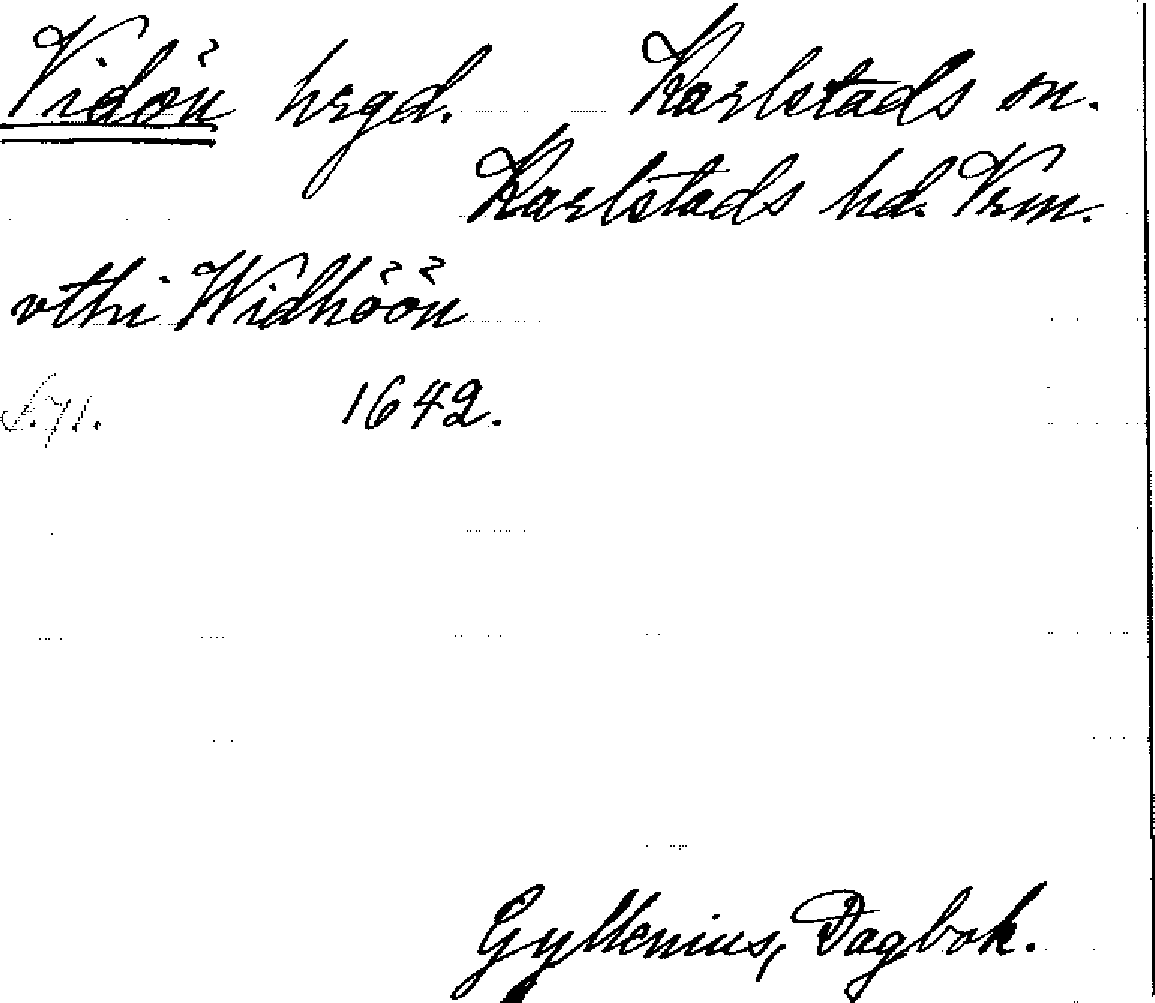 Vidön hrgd. Karlstads sn.
Karlstads hd. Vrm.
vthi Widhöön
S. 71. 1642.
Gyllenius, Dagbok.